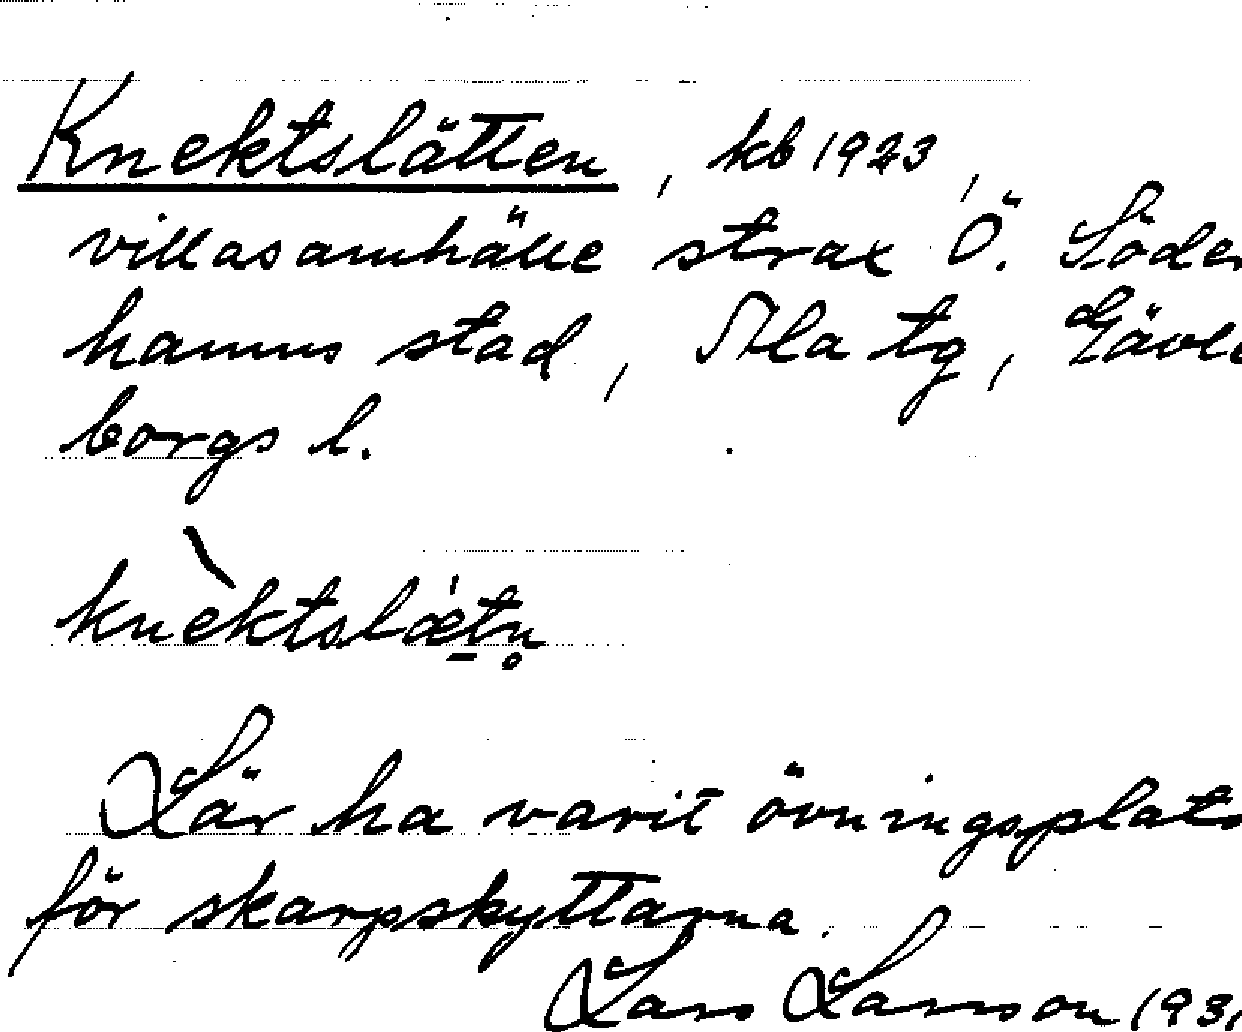 Knektslätten, kb 1923,
villasamhälle strax Ö. Söder
hamns stad, Ala tg, Gävle
borgs l.
knèktslæ̀tn̥
Lär ha varit övningsplats
för skarpskyttarna.
Lars Larsson 193